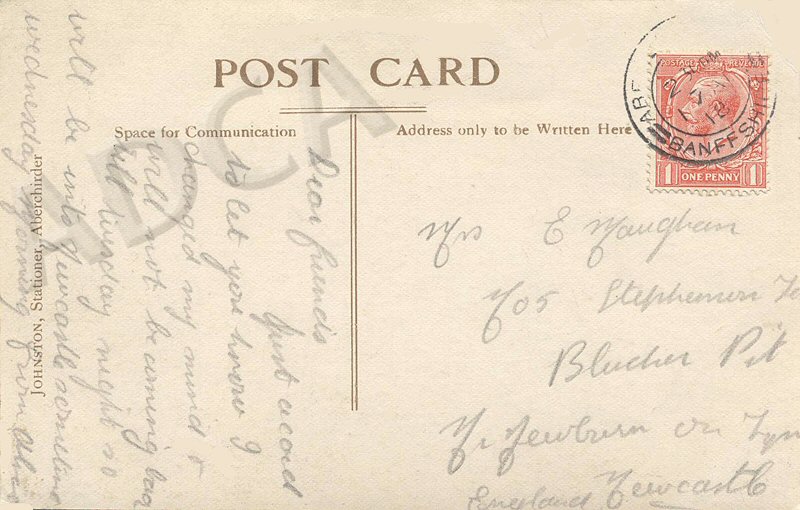 POST CARD
Space for Communication
Address only to be Written Here
Dear friends
Just a card
to let you know I
changed my mind &
will not be coming bac
till tuesday night so
will be into Newcastle sometime
wednesday morning from
JOHNSTON, Stationer, Aberchirder
Mrs E Maughan
Stephenson
Blucher Pit
Nr Newburn on Tyn
England Newcastle
POSTAGE REVENUE
1 ONE PENNY 1
BANFFSHIRE
18
HDCA